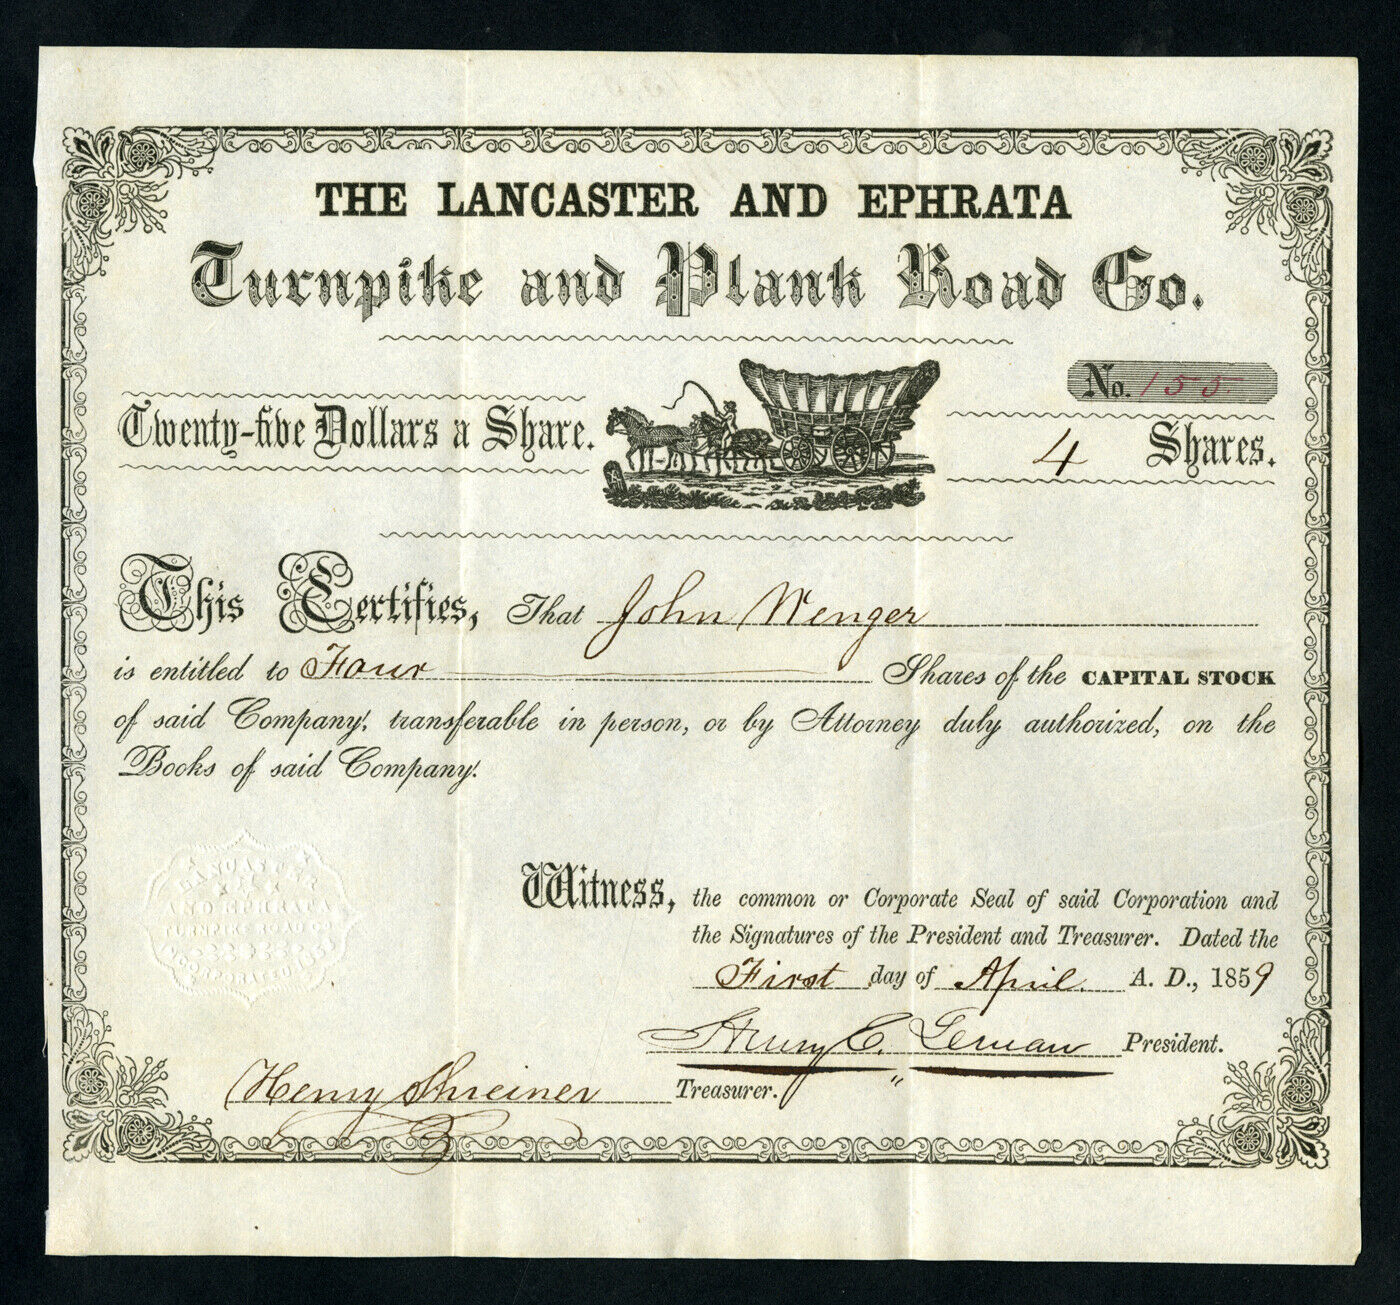 THE LANCASTER AND EPHRATA
Turnpike and Plank Road Co.
No. 155
Twenty-five Dollars a Share.
4 Shares.
This Certifies, That John Wenger
is entitled to Four Shares of the CAPITAL STOCK
of said Company, transferable in person, or by Attorney duly authorized, on the
Books of said Company.
LANCASTER
AND EPHRATA
TURNPIKE ROAD CO
INCORPORATED
Witness, the common or Corporate Seal of said Corporation and
the Signatures of the President and Treasurer. Dated the
First day of April A. D., 1859
Henry C. Leman President.
Henry Shreiner Treasurer.